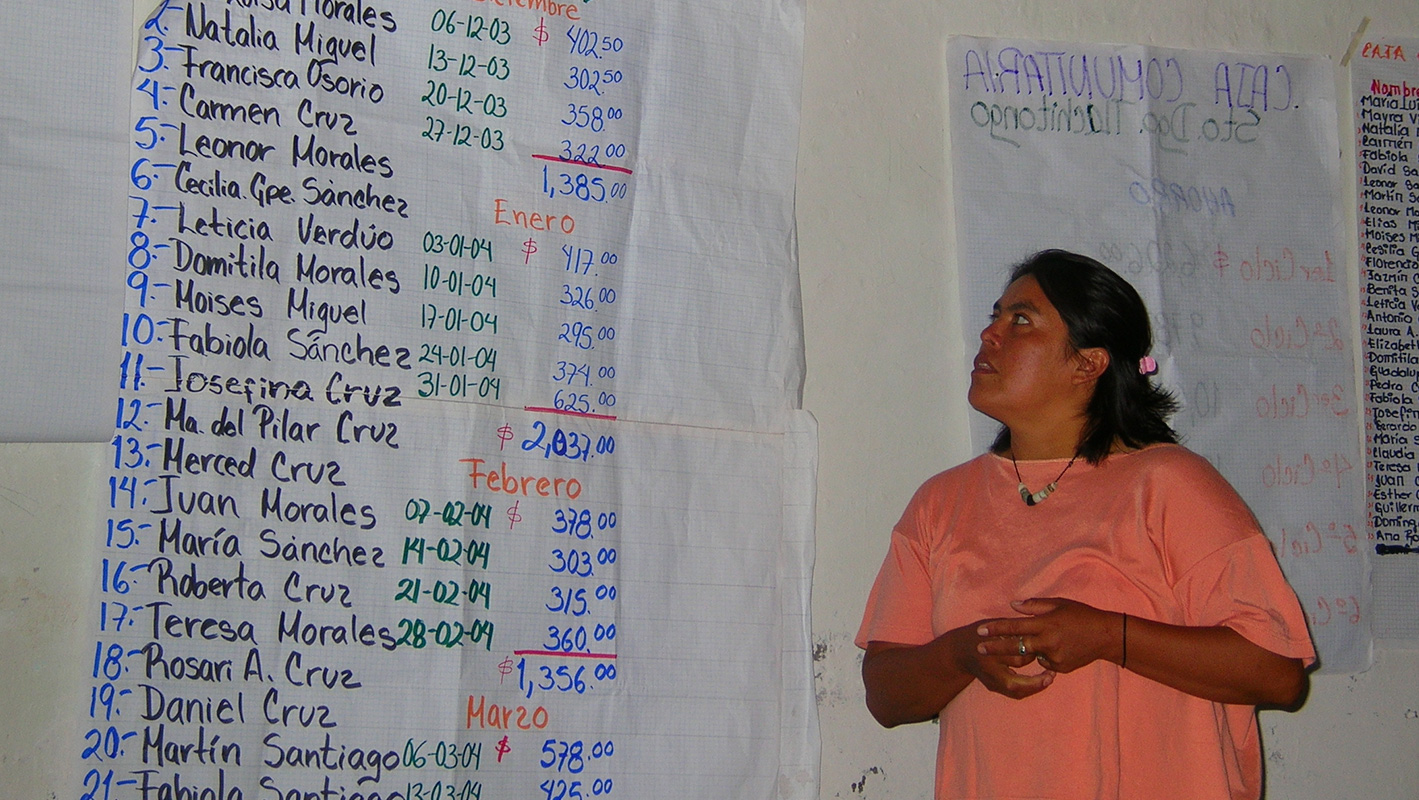 Diciembre
Luisa Morales 06-12-03 $ 402.50
2.- Natalia Miguel 13-12-03 302.50
3.- Francisca Osorio 20-12-03 358.00
4.- Carmen Cruz 27-12-03 322.00
5.- Leonor Morales 1,385.00
6.- Cecilia. Gpe. Sánchez Enero
7.- Leticia Verdúo 03-01-04 $ 417.00
8.- Domitila Morales 10-01-04 326.00
9.- Moises Miguel 17-01-04 295.00
10.- Fabiola Sánchez 24-01-04 374.00
11.- Josefina Cruz 31-01-04 625.00
12.- Ma. del Pilar Cruz $ 2,037.00
13.- Merced Cruz Febrero
14.- Juan Morales 07-02-04 $ 378.00
15.- María Sánchez 14-02-04 303.00
16.- Roberta Cruz 21-02-04 315.00
17.- Teresa Morales 28-02-04 360.00
18.- Rosari A. Cruz $ 1,356.00
19.- Daniel Cruz Marzo
20.- Martín Santiago 06-03-04 $ 578.00
21.- Fabiola Santiago 13-03-04 425.00
CAJA COMUNITARIA
Sto. Dgo. Tlachitongo
AHORRO
1er Ciclo $
2º Ciclo
3º Ciclo
4º Ciclo
5º Ciclo
6º C
CAJA
Nombre
María Lui
Mayra V
Natalia
Carmen
Fabiola
David Sa
Leonor Sa
Martín S
Leonor Mo
Elias Mi
Moises M
Cesilia G
Florencio
Jazmín C
Benita S
Leticia Ve
Antonio
Laura A.
Elizabeth
Domitila
Guadalup
Pedro C
Fabiola
Josefin
Gerardo
María S
Claudia
Teresa
Juan C
Esther
Guiller
Doming
Ana Ro